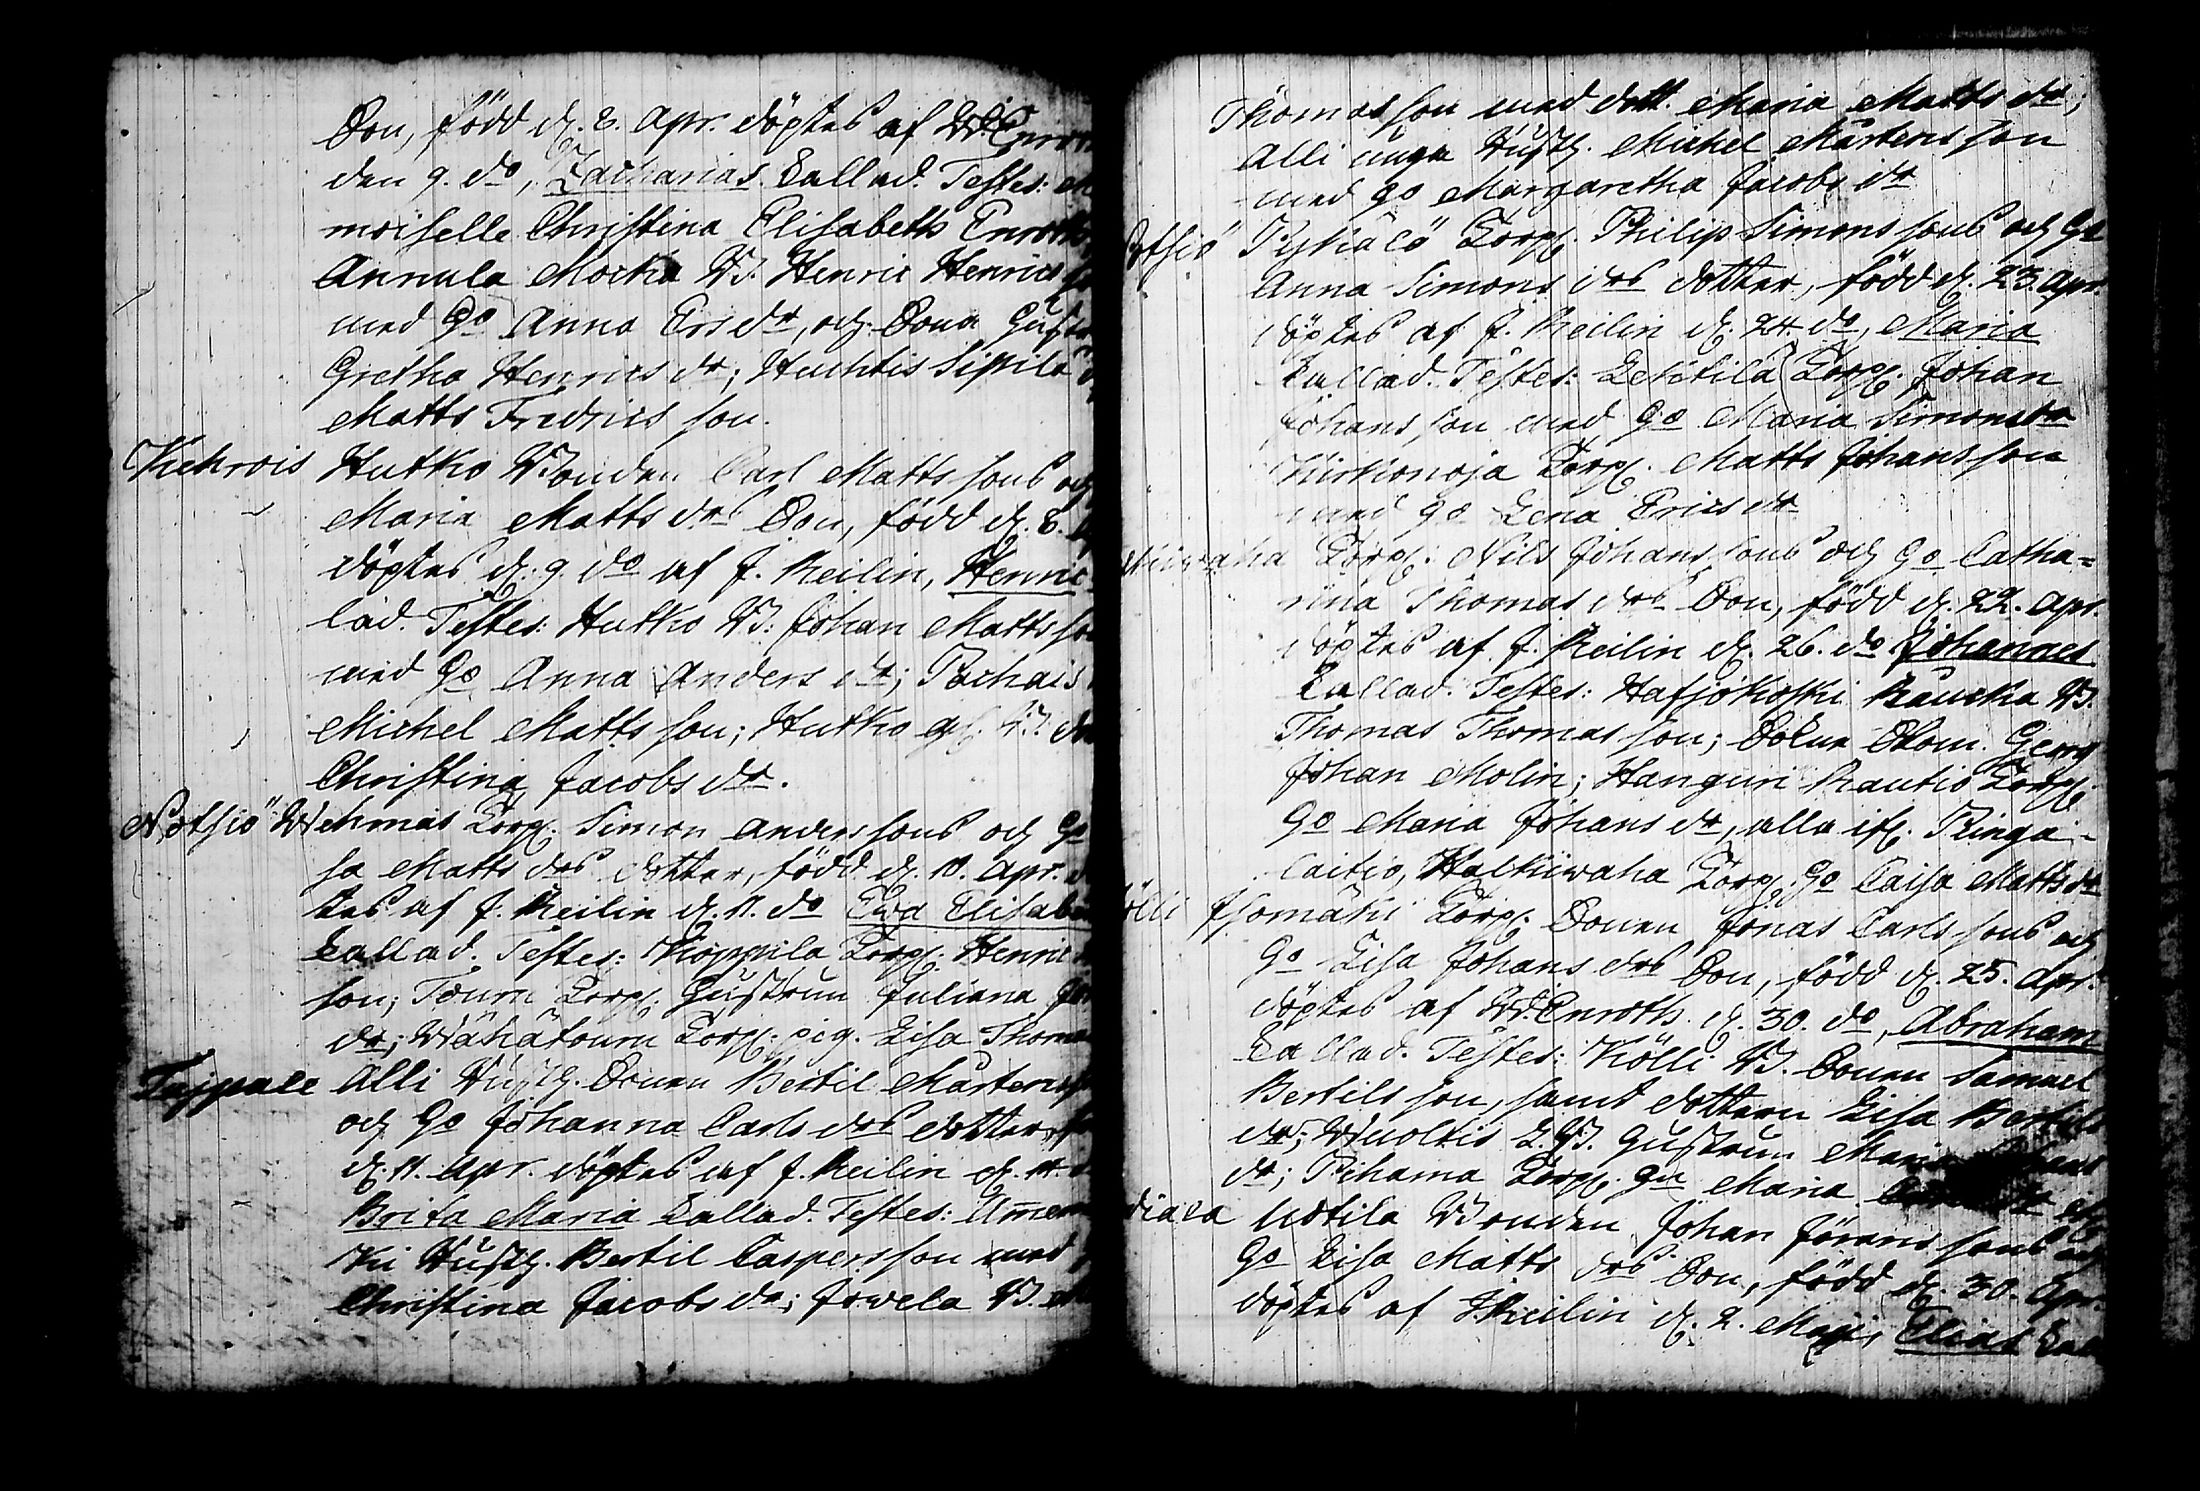 Son, född d. 8. Apr. döptes af
den 9. do, Zacharias kallad. Testes:
moiselle Christina Elisabeth Enroth
Annula Mocka B. Henric Henrics
med Ho Anna Ersdr, och Sona Hust
Gretha Henricsdr; Huhtis Sippilä
Matts Fredricsson.
Kiehrois Hutko Bonden Carl Mattssons och
Maria Mattsdrs Son, född d. 8.
döptes d. 9. do af J. Reilin, Henric
lad. Testes: Hutko B. Johan Mattsson
med Ho Anna Andersdr; Pachais
Michel Mattsson; Hutko
Christina Jacobsdr.
Notsiö Wehmas Torp. Simon Anderssons och Ho
sa Mattsdrs dotter, född d. 10. Apr.
tes af J. Reilin d. 11. do Ewa Elisab
kallad. Testes: Koppila Torp. Henric
son; Touru Torp. Hustrun Juliana
dr; Wähätouru Torp. pig. Lisa Thomas
Taipale Alli Husb. Sonen Bertil Mårtensson
och Ho Johanna Carlsdrs dotter,
d. 11. Apr. döptes af J. Reilin d. 14.
Brita Maria kallad. Testes:
ki Husb. Bertil Caspersson med
Christina Jacobsdr; Jowela B.
Thomasson med dott. Maria Mattsdr;
Alli unga Husb. Michel Mårtensson
med Ho Margaretha Jacobsdr
otsiö Pykälö Torp. Philip Simonssons och Ho
Anna Simonsdrs dotter, född d. 23. Apr.
döptes af J. Reilin d. 24 do, Maria
kallad. Testes: Lehtilä Torp. Johan
Johansson med Ho Maria Simonsdr
Kirkonoja Torp. Matts Johansson
med Ho Lena Ericsdr
Torp. Nils Johanssons och Ho Catha=
rina Thomasdrs Son, född d. 22. Apr.
döptes af J. Reilin d. 26. do Johannes
kallad. Testes: Hafjokoski Raucka B.
Thomas Thomasson; Sokn Skom. Georg
Johan Molin; Hanguri Rautio Torp.
Ho Maria Johansdr, alla ifr. Pinga-
laitio, Halkiwaha Torp. Ho Caisa Mattsdr
ölli Isomäki Torp. Sonen Jonas Carlssons och
Ho Lisa Johansdrs Son, född d. 25. Apr.
döptes af Enroth d. 30. do, Abraham
kallad. Testes: Kölli B. Sonen Samuel
Bertilsson, samt dottern Lisa Bertils
dr; Wuoltis L.B. Hustrun Maria
dr; Pihama Torp. Hu Maria
diala Uotila Bonden Johan Jöranssons och
Ho Lisa Mattsdrs Son, född d. 30. Apr.
döptes af J. Reilin d. 2. Maji, Elias kall